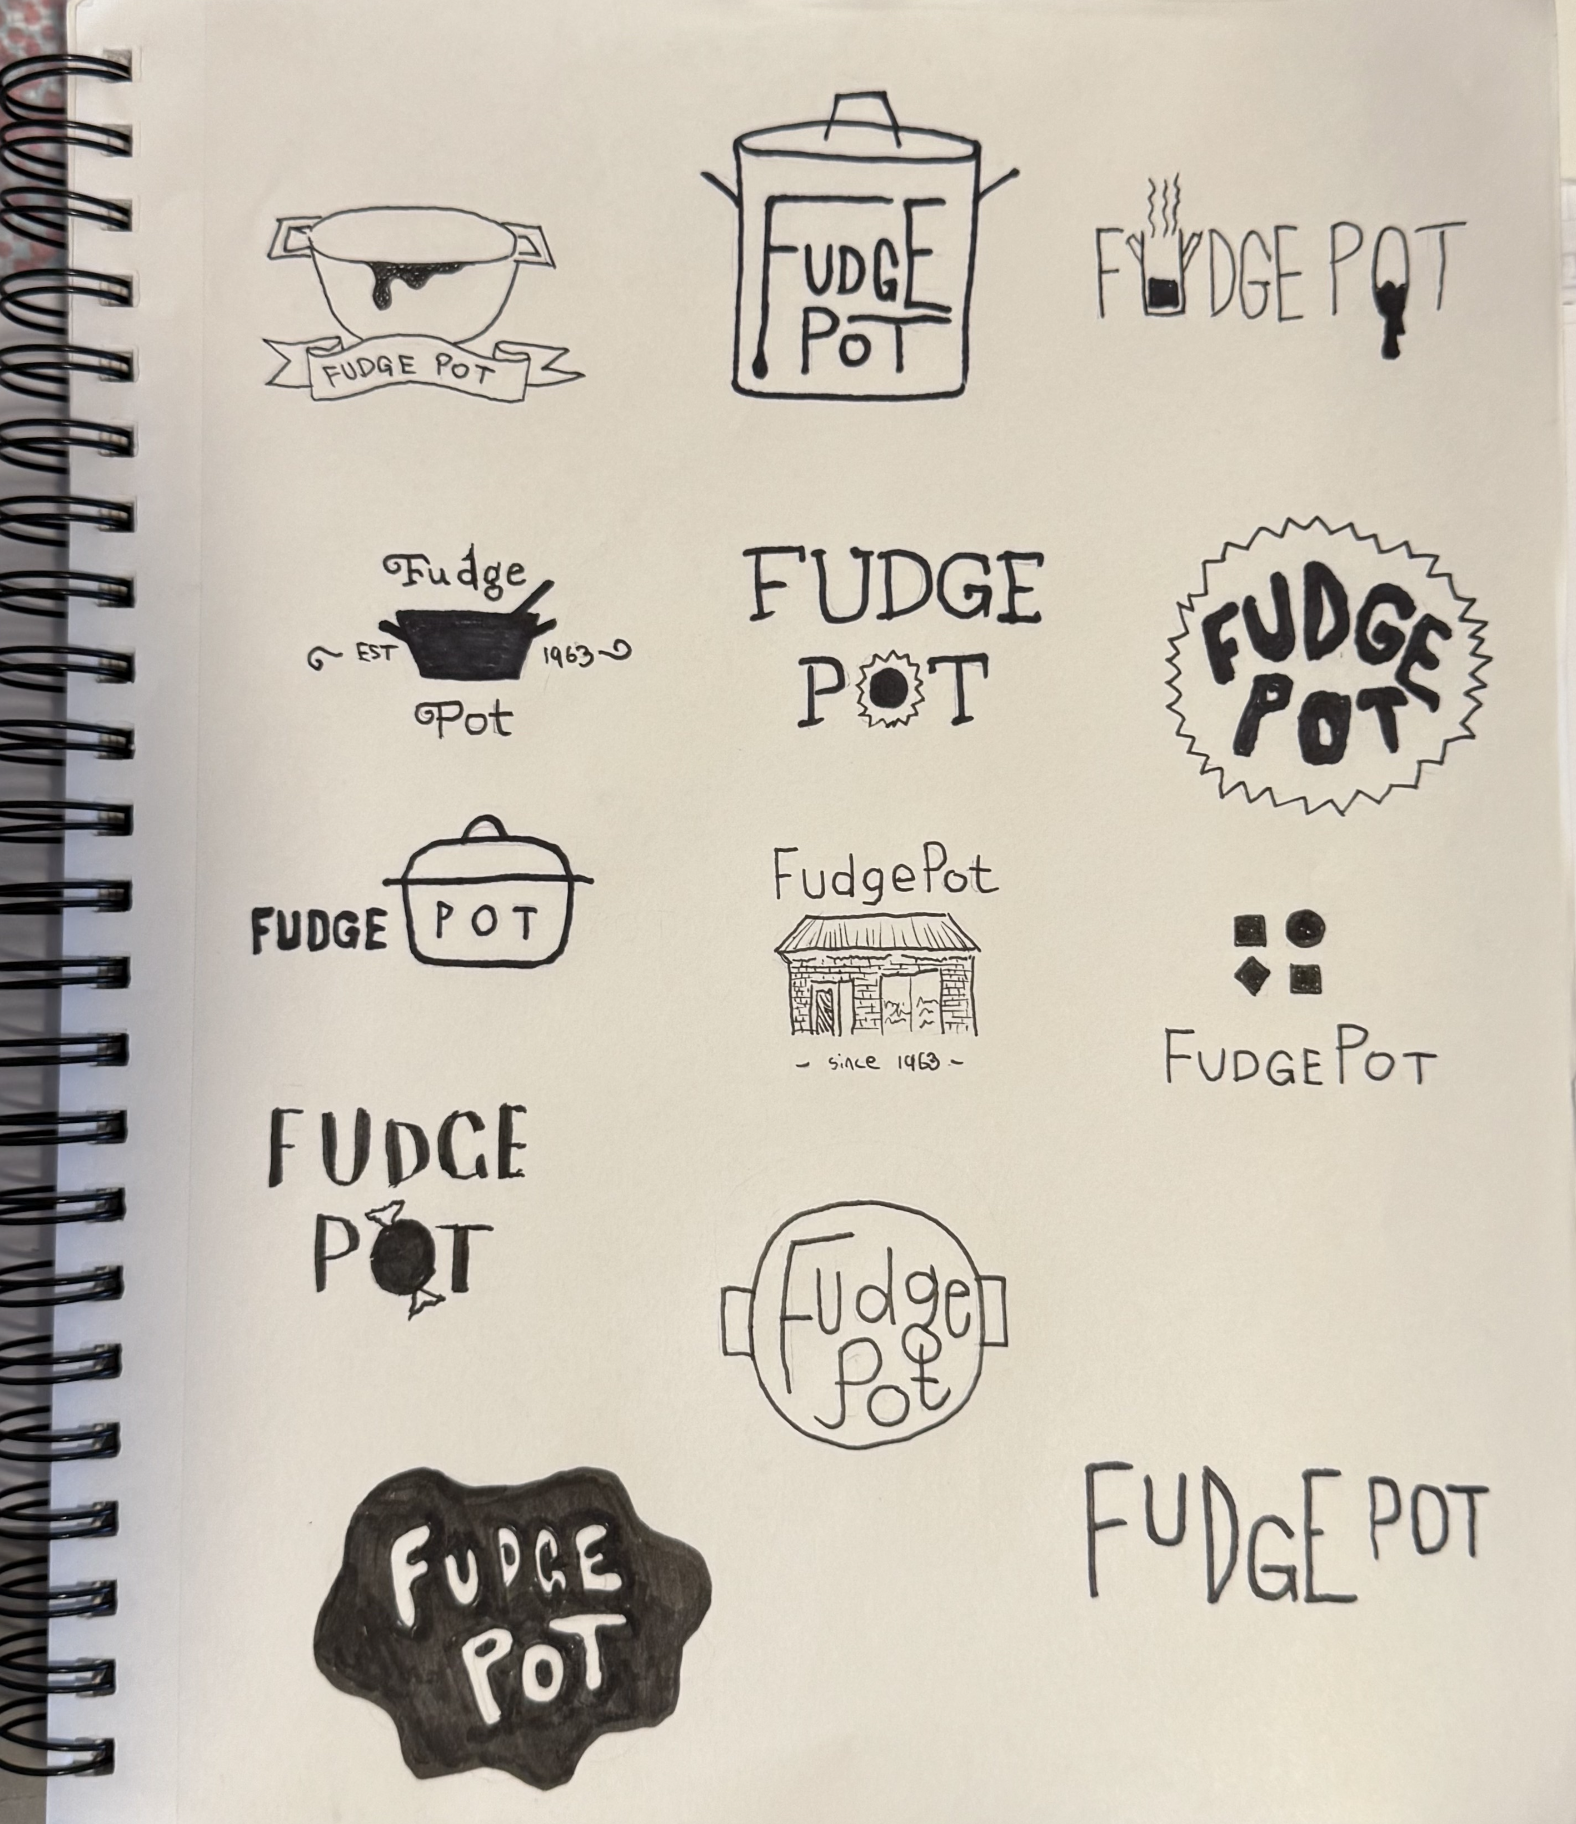 FUDGE POT
FUDGE
POT
FUDGE POT
Fudge
EST 1963
Pot
FUDGE
POT
FUDGE
POT
FUDGE POT
FudgePot
- since 1963 -
FUDGEPOT
FUDGE
POT
Fudge
Pot
FUDGE
POT
FUDGE POT